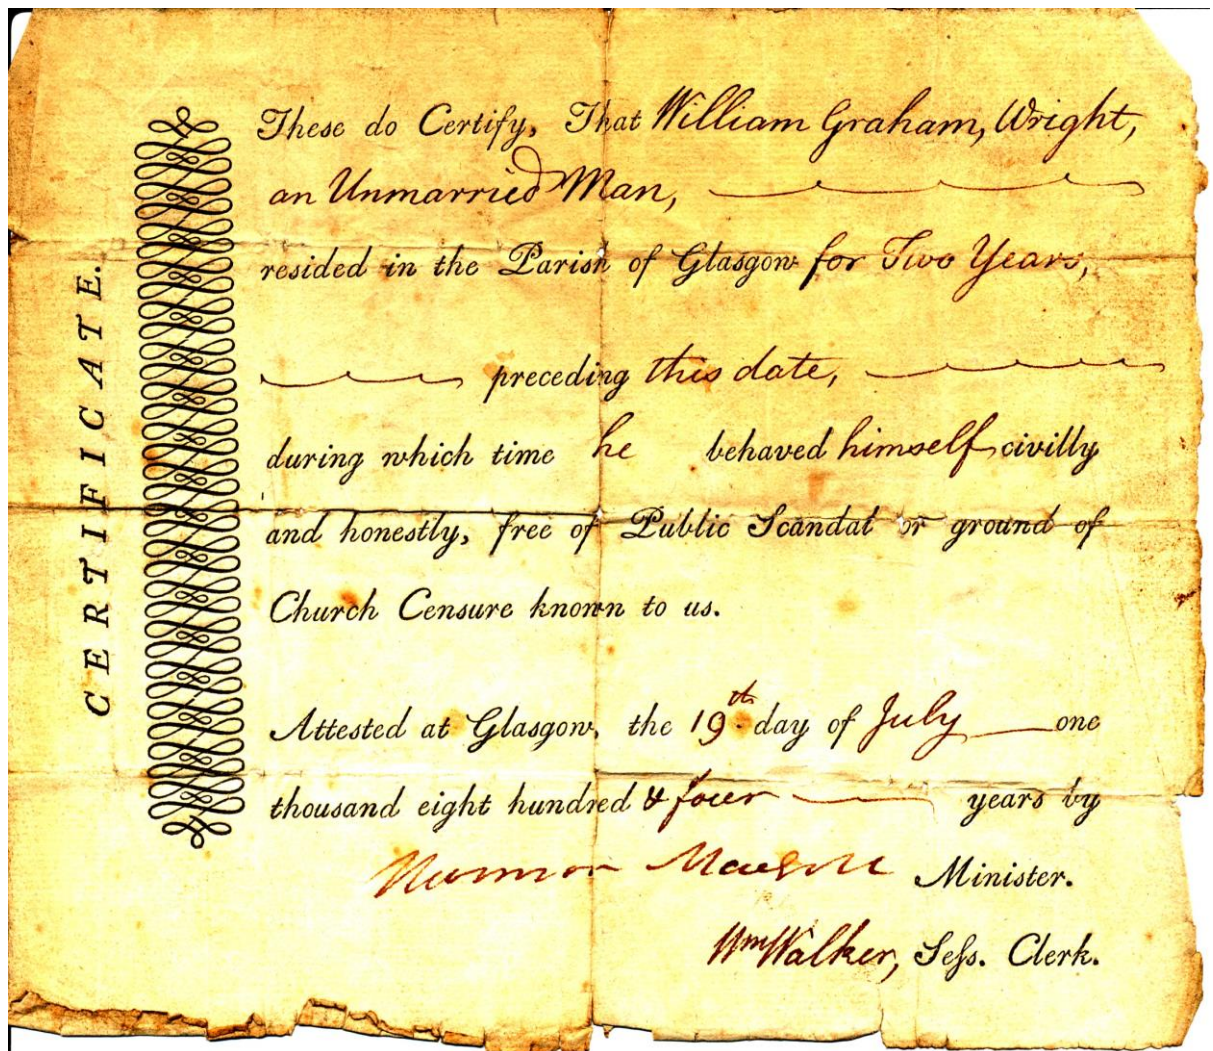 CERTIFICATE.
These do Certify, That William Graham, Wright,
an Unmarried Man,
resided in the Parish of Glasgow for Two Years,
preceding this date,
during which time he behaved himself civilly
and honestly, free of Public Scandal or ground of
Church Censure known to us.
Attested at Glasgow, the 19th day of July one
thousand eight hundred & four years by
Minister.
Wm Walker, Seſs. Clerk.